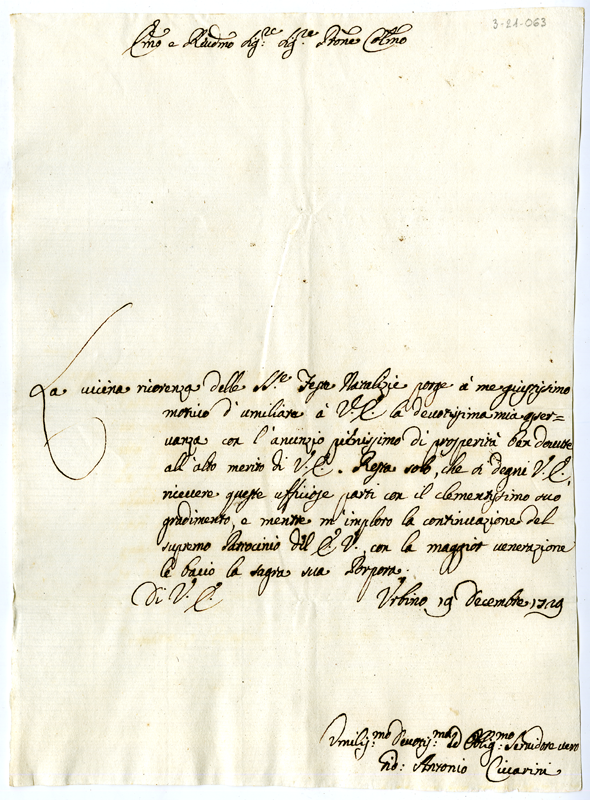 3-21-063
E.mo e R.mo Sig.re Sig.re P.rone Col.mo
La vicina ricorenza delle SS.e Feste Natalizie porge à me giustissimo
motivo d'umiliare à V.E. la devotissima mia osser=
vanza con l'anunzio pienissimo di prosperità ben dovute
all'alto merito di V.E. Resta solo, che si degni V.E.
ricevere queste ufficiose parti con il clementissimo suo
gradimento, e mentre m'imploro la continuazione del
supremo Patrocinio dell'E.V., con la maggior venerazione
le bacio la sagra sua Porpora.
Di V.E. Urbino 19 Decembre 1729
Umiliss.mo Devotiss.mo ed Oblig.mo Servidore vero
Gio: Antonio Ciccarini